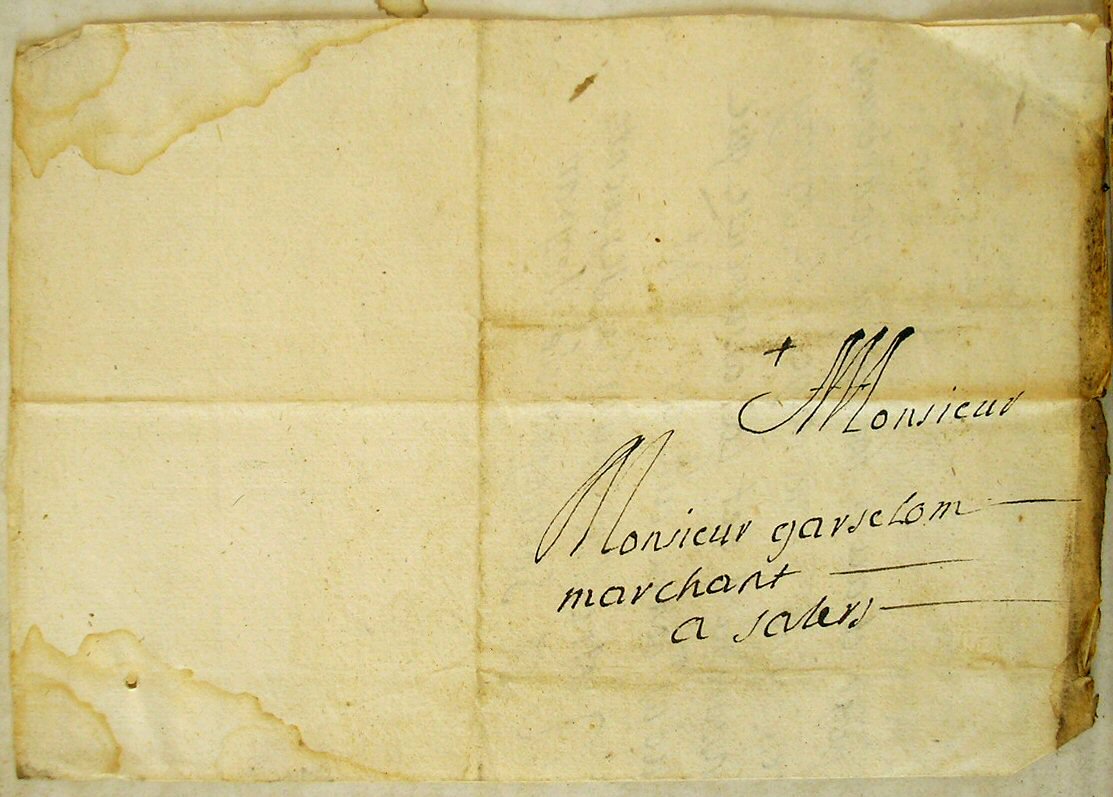 + Monsieur
Monsieur garselom
marchant
a salers